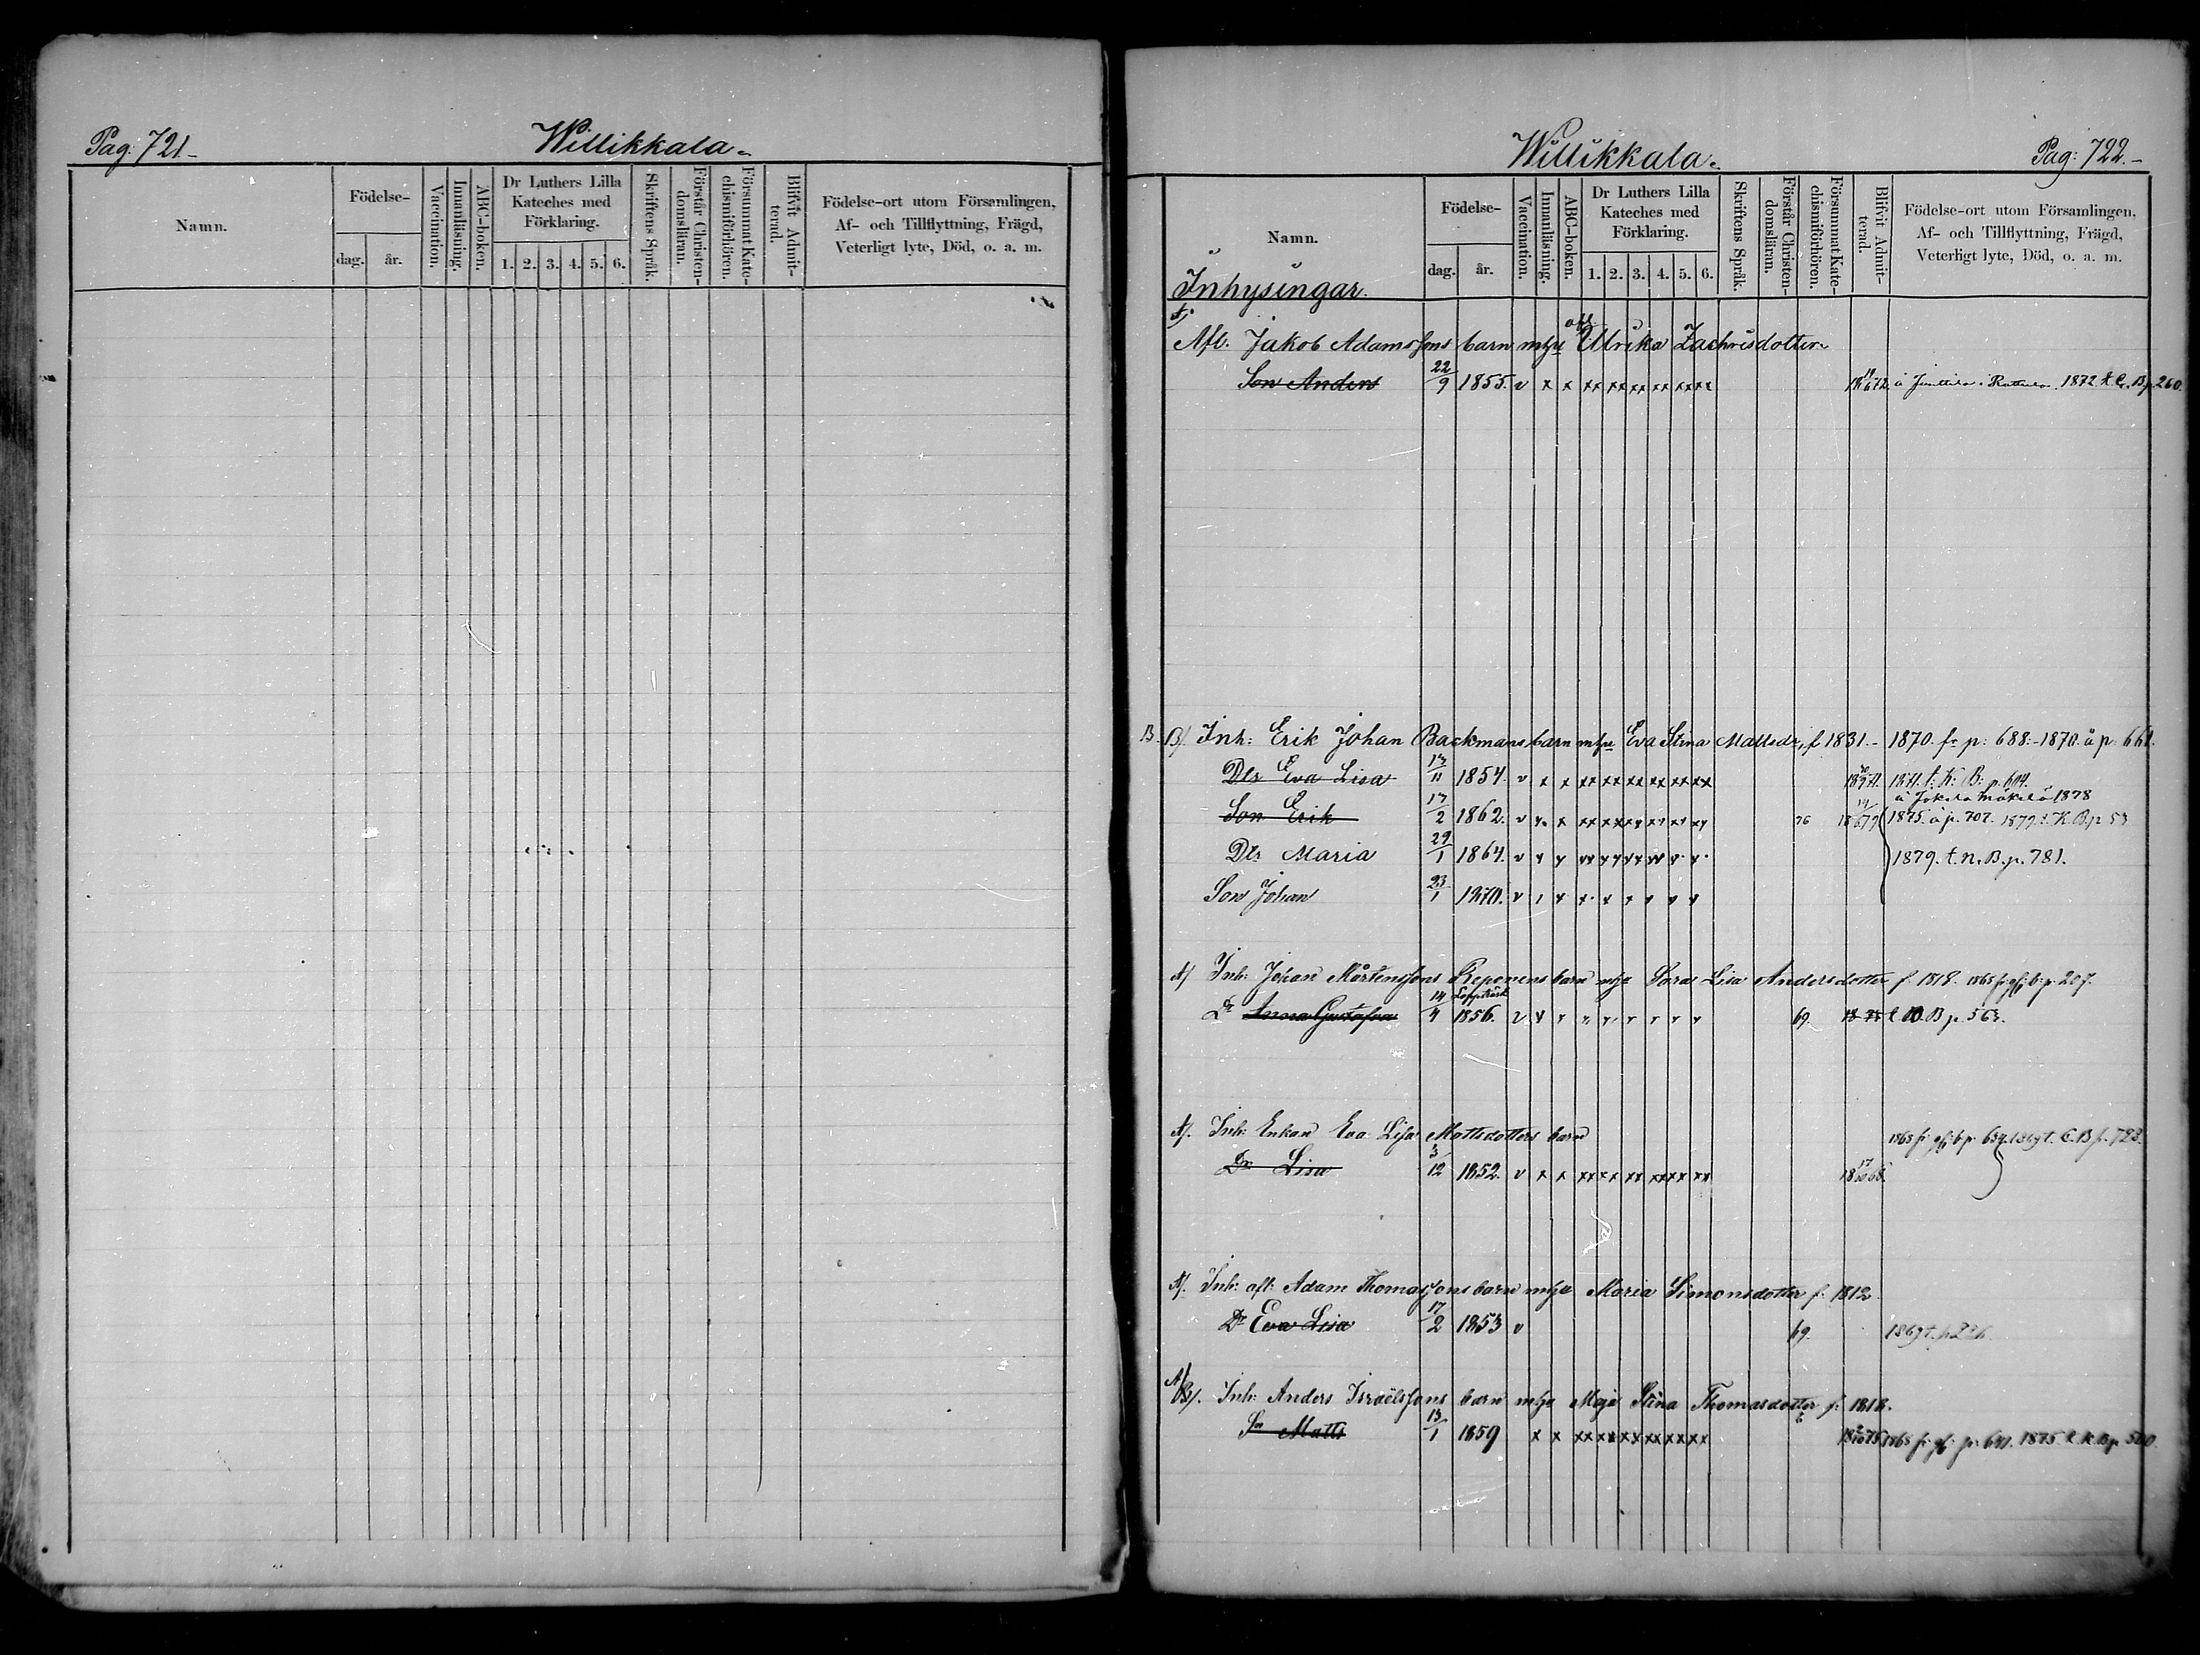 Pag: 721.
Willikkala.
Namn.
Födelse-
dag. år.
Vaccination.
Innanläsning.
ABC-boken.
Dr Luthers Lilla Kateches med Förklaring.
1. 2. 3. 4. 5. 6.
Skriftens Språk.
Förstår Christendomsläran.
Försummat Katechismiförhören.
Blifvit Admitterad.
Födelse-ort utom Församlingen,
Af- och Tillflyttning, Frägd,
Veterligt lyte, Död, o. a. m.
Willikkala.
Pag: 722.
Namn.
Födelse-
dag. år.
Vaccination.
Innanläsning.
ABC-boken.
Dr Luthers Lilla Kateches med Förklaring.
1. 2. 3. 4. 5. 6.
Skriftens Språk.
Förstår Christendomsläran.
Försummat Katechismiförhören.
Blifvit Admitterad.
Födelse-ort utom Församlingen,
Af- och Tillflyttning, Frägd,
Veterligt lyte, Död, o. a. m.
Inhysingar.
Afl. Jakob Adamssons barn m hu Ulrika Zachrisdotter
Son Anders 22/9 1855. v x x xx xx xx xx xx xx 1872. 1872 B p. 260.
B B/. Inh: Erik Johan Backmans barn m hu Eva Stina Mattsdr, f 1831.- 1870. fr p: 688.-1870. å p. 661.
Dtr Eva Lisa 13/11 1854. v x x xx xx xx xx xx xx 1871. t. K: B: p. 604.
å Jokela Mäkelä 1878
Son Erik 17/2 1862. v x x xx xx xx xx xx xx 76 1875. å p. 707. 1879. t. K. B. p 53
Dtr Maria 29/1 1864. v 1879. t. n. B. p. 781.
Son Johan 23/1 1870. v
A/ Inh: Johan Mårtenssons Reponens barn m hu Sara Lisa Andersdotter f. 1818. 1868 fr. b. p. 207.
Loppträsk
Dr Anna Gustafva 14/4 1856. v 69. B p. 563.
A/. Inh: Enkan Eva Lisa Mattsdotters barn 1868 fr. b p. 639. 1869 t. C. B p. 723.
Dr Lisa 3/12 1852. v x x xx xx xx xx xx 17/10 1868.
A/. Inh: afl: Adam Thomassons barn m hu Maria Simonsdotter f. 1812.
Dr Eva Lisa 17/2 1853 v 69. 1869 t. p 226.
A/B/. Inh: Anders Israëlssons barn m hu Maja Stina Thomasdotter f. 1818.
Sn Matts 13/1 1859 x x xx xx xx xx xx xx 1875 1868 fr. p. 641. 1875. t. K. B p. 500.